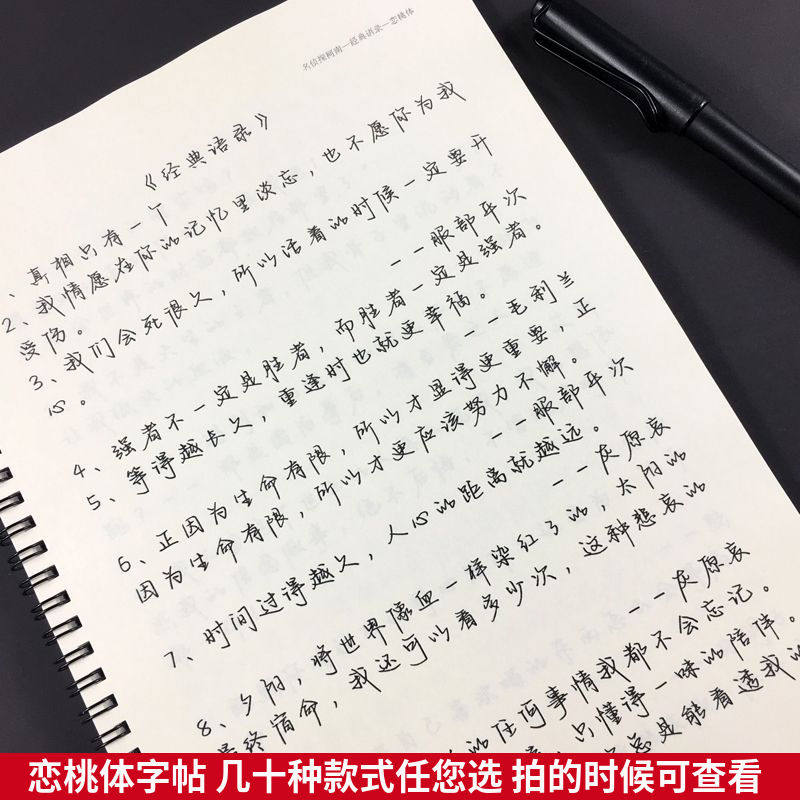 名侦探柯南—经典语录—恋桃体
《经典语录》
、真相只有一个
2、我情愿在你的记忆里淡忘，也不愿你为我
受伤。
3、我们会死很久，所以活着的时候一定要开
心。
——服部平次
4、强者不一定是胜者，而胜者一定是强者。
5、等得越长久，重逢时也就更幸福。
——毛利兰
6、正因为生命有限，所以才显得更重要，正
因为生命有限，所以才更应该努力不懈。
——服部平次
7、时间过得越久，人心的距离就越远。
——灰原哀
8、夕阳，将世界像血一样染红了的，太阳的
最终宿命，我还可以看多少次，这种悲哀的
——灰原哀
的任何事情我都不会忘记。
只懂得一味的陪伴。
总是能看透我的
恋桃体字帖 几十种款式任您选 拍的时候可查看